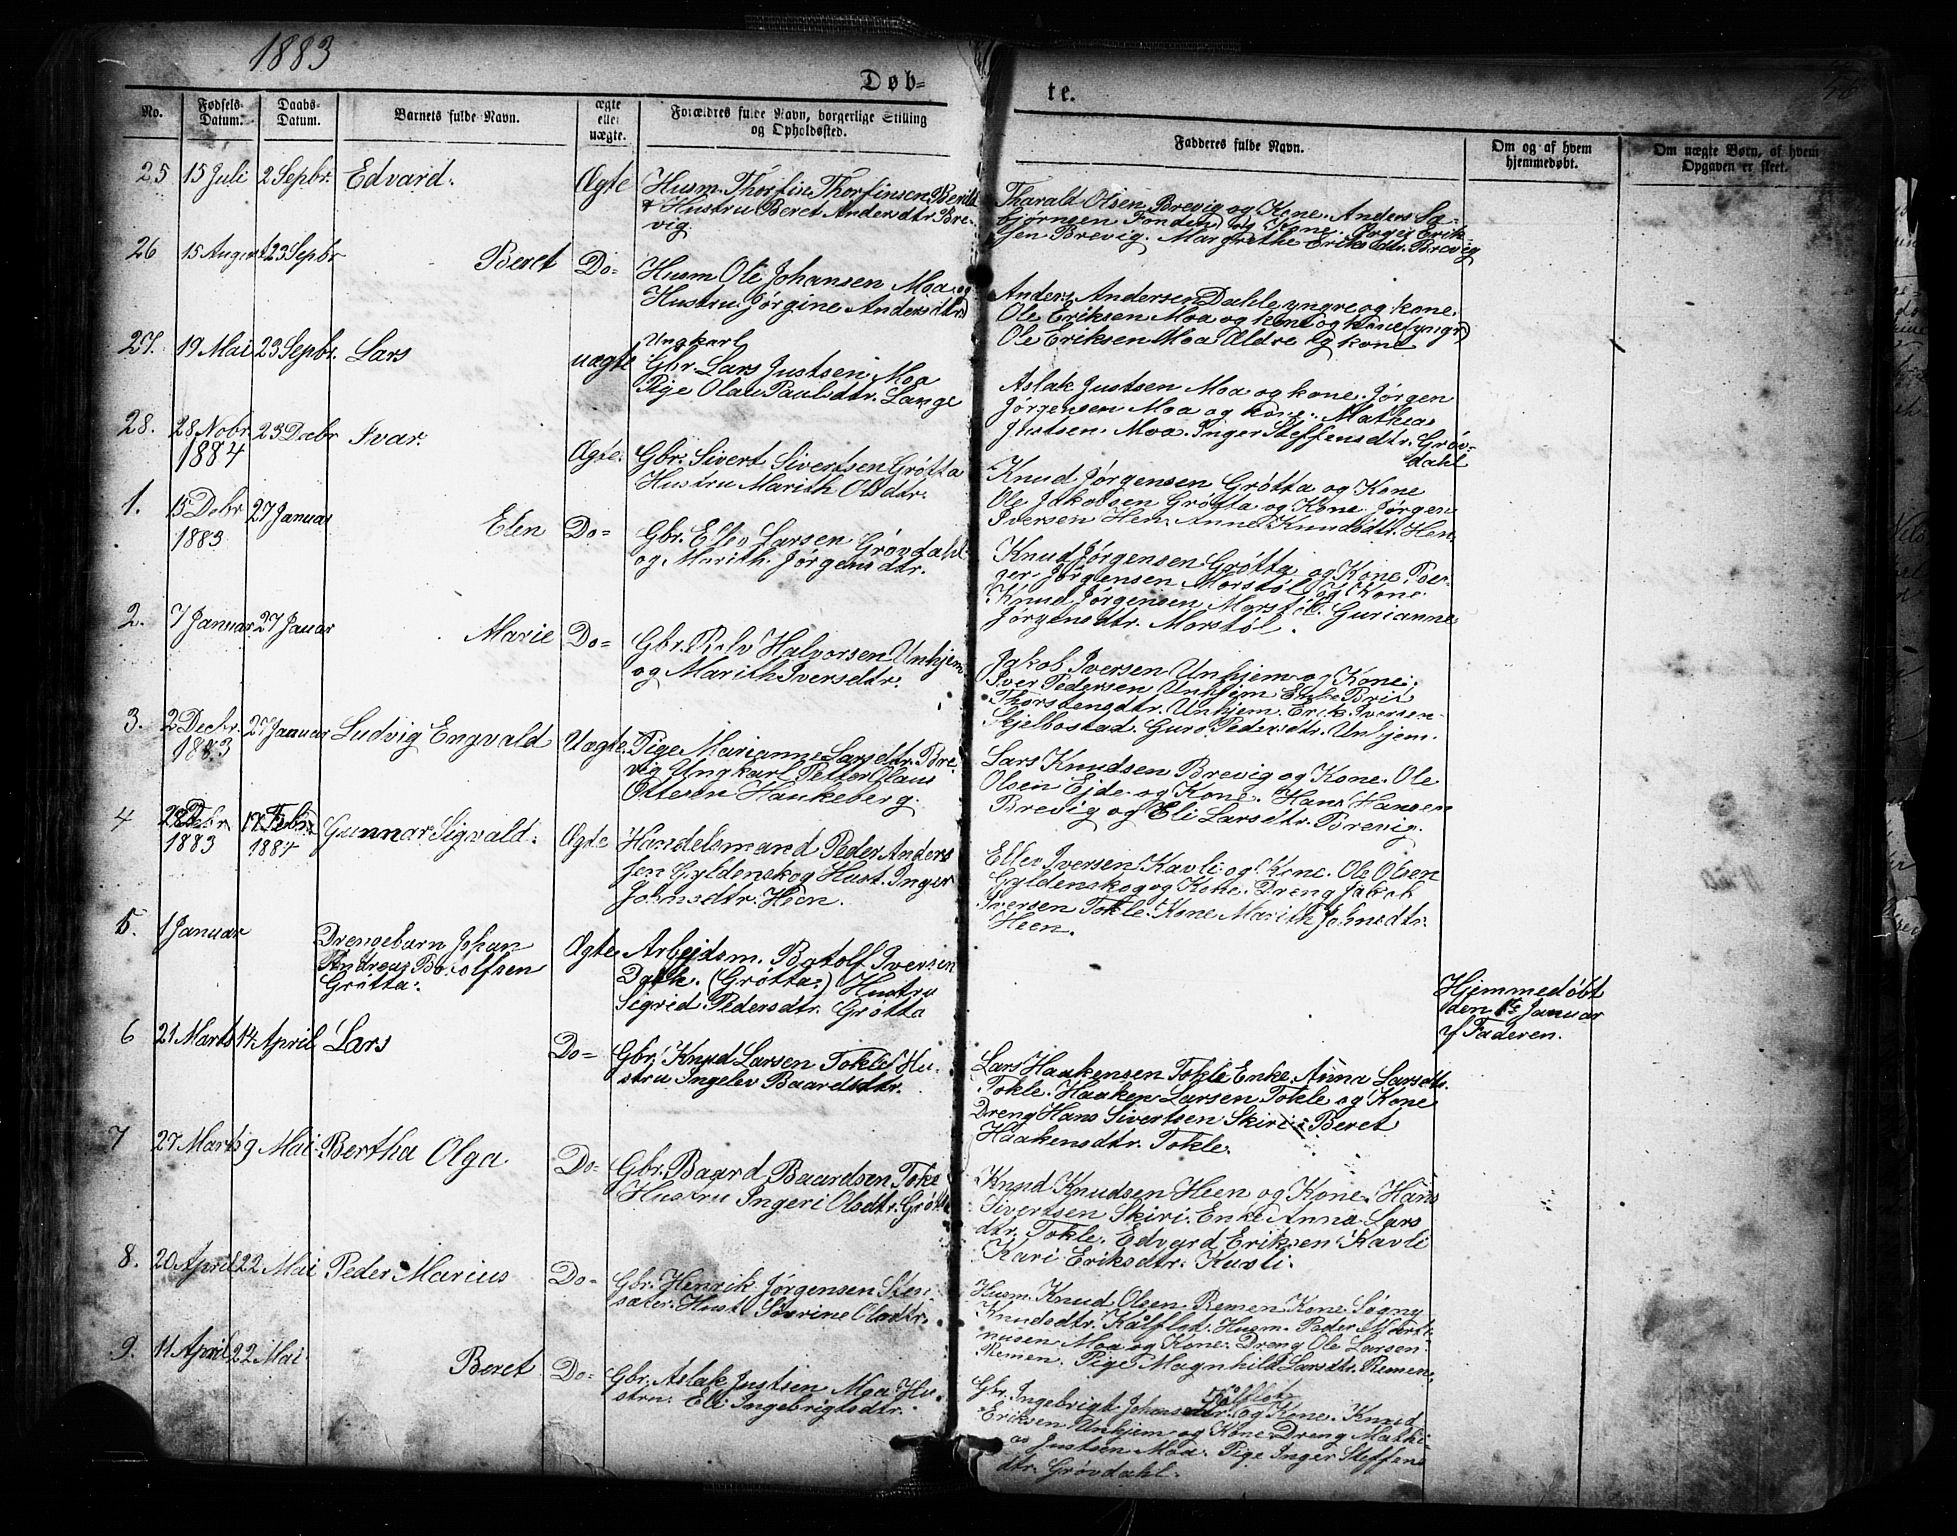 1883
Døb-
te.
No.
Fødsels-
Datum.
Daabs-
Datum.
Barnets fulde Navn.
ægte
eller
uægte.
Forældres fulde Navn, borgerlige Stilling
og Opholdssted.
Fadderes fulde Navn.
Om og af hvem
hjemmedøbt.
Om uægte Børn, af hvem
Opgaven er skeet.
25 15 Juli 2 Sepbr. Edvard. Ægte
Husm. Thorfin Thorfinsen
& Hustru Beret Andersdtr. Bre-
vig.
Tharald Olsen Brevig og Kone. Anders Sa-
bjørnsen og Kone. Erik-
sen Brevig. Margrethe Eriksdtr. Brevig
26 15 August 23 Sepbr Beret Do=
Husm Ole Johansen Moa og
Hustru Jørgine Andersdtr.
Anders Andersen Dahle yngre og kone.
Ole Eriksen Moa og kone
Ole Eriksen Moa Ældre og kone
27. 19 Mai 23 Sepbr. Lars uægte
Ungkarl
Gbr. Lars Justsen Moa
Pige Olau Paulsdtr. Lange
Aslak Justsen Moa og kone. Jørgen
Jørgensen Moa og kone. Mathias
Justsen Moa. Inger Steffensdtr. Grøv-
dahl
28. 28 Nobr. 23 Decbr Ivar. Ægte.
1884
Gbr. Sivert Sivertsen Grøtta
Hustru Marith Olsdtr.
Knud Jørgensen Grøtta og Kone
Ole Jakobsen Grøtta og Kone Jørgen
Iversen Hen. Anne Knudsdtr. Hen
1. 15 Debr 27 Januar Elen Do=
1883
Gbr. Ellev Larsen Grøvdahl
og Marith Jørgensdtr.
Knud Jørgensen Grøtta og Kone
Jørgensen Morstøl og Kone.
Knud Jørgensen Morstøl. Gurianne
Jørgensdtr. Morstøl.
2. 7 Januar 27 Januar Marie Do=
Gbr. Halvorsen Unhjem
og Marith Iversdtr.
Jakob Iversen Unhjem og Kone.
Iver Pedersen Unhjem Enke Brit
Thorstensdtr. Unhjem. Erik Iversen
Skjelbostad. Guro Pedersdtr. Unhjem.
3. 2 Decbr. 27 Januar Ludvig Engvald Uægte.
1883
Pige Marianne Larsdtr. Bre-
vig Ungkarl Petter Olaus
Ottesen Haukeberg.
Lars Knudsen Brevig og Kone. Ole
Olsen Eide og Kone. Hans Hansen
Brevig og Eli Larsdtr. Brevig.
4 Gunnar Sigvald. Ægte
1883 1884
Handelsmand Peder Anders
sen Gyldenskog Hust. Inger
Johnsdtr. Heen.
Ellev Iversen Kavli og Kone. Ole Olsen
Gyldenskog og Kone. Dreng Jakob
Iversen Tokle. Kone Marith Johnsdtr.
Heen.
5. 1 Januar Ægte
Drengebarn Johan
Andreas Botolfsen
Grøtta.
Arbejdsm. Botolf Iversen
(Grøtta) Hustru
Sigrid Pedersdtr. Grøtta
Hjemmedøbt
den 1ste Januar
af Faderen.
6 21 Marts 14 April Lars Do=
Gbr. Knud Larsen Tokle Hu-
stru Ingelev Baardsdtr.
Lars Haakensen Tokle Enke Anna Larsdtr.
Tokle. Haaken Larsen Tokle og Kone
Dreng Hans Sivertsen Skiri. Beret
Haakensdtr. Tokle.
7 27 Marts 9 Mai Bertha Olga Do=
Gbr. Baard Baardsen Tokle
Hustru Ingeri Olsdtr. Grøtte
Knud Knudsen Heen og Kone. Hans
Sivertsen Skiri. Enke Anna Lars
dtr. Tokle. Edvard Eriksen Kavli
Kari Eriksdtr. Kavli.
8. 20 April 22 Mai Peder Marius Do=
Gbr. Henrik Jørgensen Sten-
sæter. Hust. Søvrine Olsdtr.
Husm. Knud Olsen Remen Kone Signy
Knudsdtr. Kalflot. Husm. Peder Mort-
nusen Moa og Kone. Dreng Ole Larsen
Remen. Pige Magnhild Larsdtr. Remen.
9. 11 April 22 Mai Beret Do=
Gbr. Aslak Justsen Moa Hu-
stru Eli Ingebrigtsdtr.
Kalflot
Gbr. Ingebrigt og Kone. Knud
Eriksen Unhjem og Kone. Dreng Mathi-
as Justsen Moa. Pige Inger Steffens
dtr. Grøvdahl.